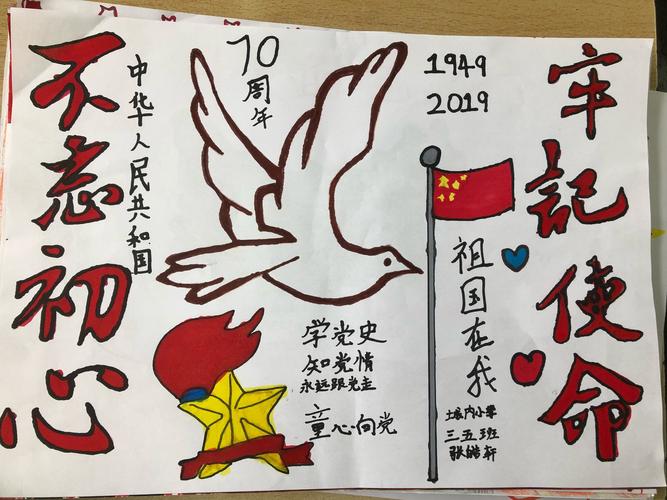 不忘初心
中华人民共和国
70
周年
1949
2019
牢記使命
祖国在我
学党史
知党情
永远跟党走
童心向党
内小学
三五班
张皓轩